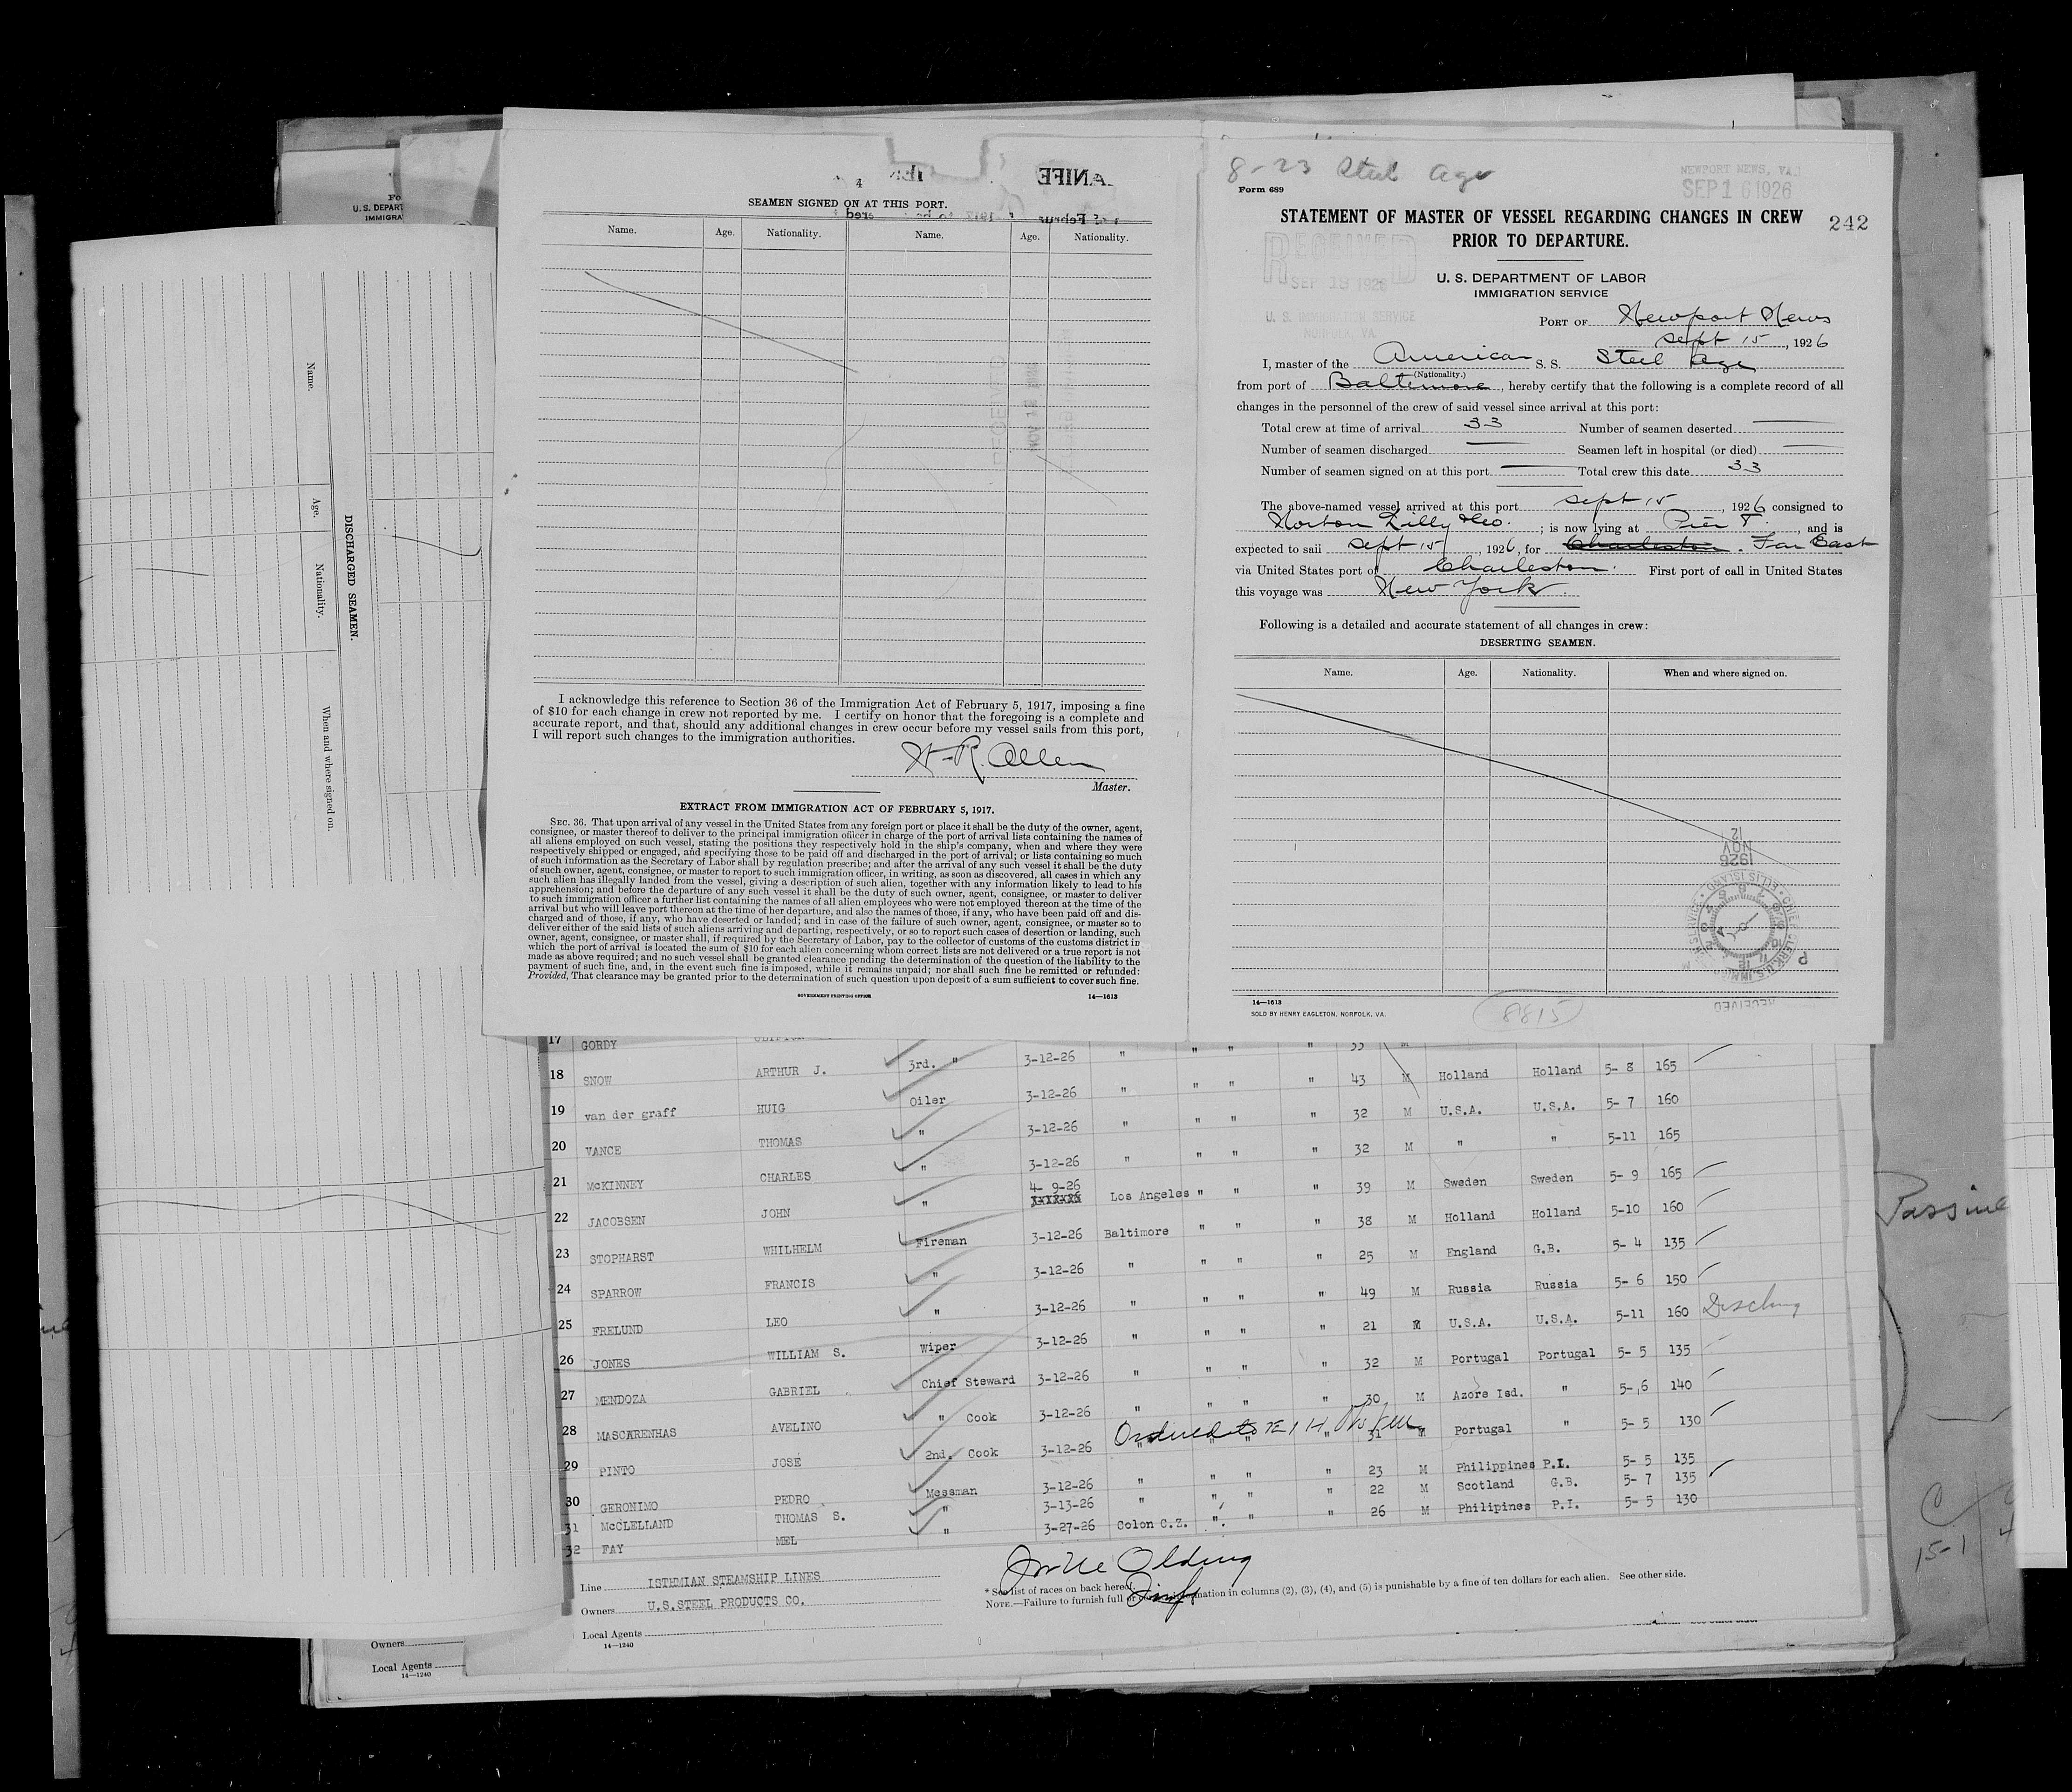 4
SEAMEN SIGNED ON AT THIS PORT.
Name. Age. Nationality. Name. Age. Nationality.
I acknowledge this reference to Section 36 of the Immigration Act of February 5, 1917, imposing a fine
of $10 for each change in crew not reported by me. I certify on honor that the foregoing is a complete and
accurate report, and that, should any additional changes in crew occur before my vessel sails from this port,
I will report such changes to the immigration authorities.
W. R. Allen
Master.
EXTRACT FROM IMMIGRATION ACT OF FEBRUARY 5, 1917.
SEC. 36. That upon arrival of any vessel in the United States from any foreign port or place it shall be the duty of the owner, agent,
consignee, or master thereof to deliver to the principal immigration officer in charge of the port of arrival lists containing the names of
all aliens employed on such vessel, stating the positions they respectively hold in the ship's company, when and where they were
respectively shipped or engaged, and specifying those to be paid off and discharged in the port of arrival; or lists containing so much
of such information as the Secretary of Labor shall by regulation prescribe; and after the arrival of any such vessel it shall be the duty
of such owner, agent, consignee, or master to report to such immigration officer, in writing, as soon as discovered, all cases in which any
such alien has illegally landed from the vessel, giving a description of such alien, together with any information likely to lead to his
apprehension; and before the departure of any such vessel it shall be the duty of such owner, agent, consignee, or master to deliver
to such immigration officer a further list containing the names of all alien employees who were not employed thereon at the time of the
arrival but who will leave port thereon at the time of her departure, and also the names of those, if any, who have been paid off and dis-
charged and of those, if any, who have deserted or landed; and in case of the failure of such owner, agent, consignee, or master so to
deliver either of the said lists of such aliens arriving and departing, respectively, or so to report such cases of desertion or landing, such
owner, agent, consignee, or master shall, if required by the Secretary of Labor, pay to the collector of customs of the customs district in
which the port of arrival is located the sum of $10 for each alien concerning whom correct lists are not delivered or a true report is not
made as above required; and no such vessel shall be granted clearance pending the determination of the question of the liability to the
payment of such fine, and, in the event such fine is imposed, while it remains unpaid; nor shall such fine be remitted or refunded:
Provided, That clearance may be granted prior to the determination of such question upon deposit of a sum sufficient to cover such fine.
GOVERNMENT PRINTING OFFICE 14—1613
8-23 Steel Age
NEWPORT NEWS, VA.
SEP 16 1926
Form 689
STATEMENT OF MASTER OF VESSEL REGARDING CHANGES IN CREW
PRIOR TO DEPARTURE.
242
RECEIVED
SEP 18 1926
U. S. IMMIGRATION SERVICE
NORFOLK, VA.
U. S. DEPARTMENT OF LABOR
IMMIGRATION SERVICE
PORT OF Newport News
Sept 15, 1926
I, master of the American S. S. Steel Age
(Nationality.)
from port of Baltimore, hereby certify that the following is a complete record of all
changes in the personnel of the crew of said vessel since arrival at this port:
Total crew at time of arrival 33 Number of seamen deserted
Number of seamen discharged Seamen left in hospital (or died)
Number of seamen signed on at this port Total crew this date 33
The above-named vessel arrived at this port Sept 15, 1926 consigned to
Norton Lilly & Co.; is now lying at Pier 8, and is
expected to sail Sept 15, 1926, for Charleston. Far East
via United States port of Charleston. First port of call in United States
this voyage was New York.
Following is a detailed and accurate statement of all changes in crew:
DESERTING SEAMEN.
Name. Age. Nationality. When and where signed on.
1926
NOV
12
RECEIVED
14—1613
SOLD BY HENRY EAGLETON, NORFOLK, VA.
8815
DISCHARGED SEAMEN.
Name. Age. Nationality. When and where signed on.
17 GORDY 3rd. " 3-12-26 " " " " 33 M
18 SNOW ARTHUR J. Oiler 3-12-26 " " " " 43 M Holland Holland 5- 8 165
19 van der graff HUIG " 3-12-26 " " " " 32 M U.S.A. U.S.A. 5- 7 160
20 VANCE THOMAS " 3-12-26 " " " " 32 M " " 5-11 165
21 McKINNEY CHARLES " 4- 9-26 Los Angeles " " " 39 M Sweden Sweden 5- 9 165
22 JACOBSEN JOHN Fireman 3-12-26 Baltimore " " " 38 M Holland Holland 5-10 160
23 STOPHARST WHILHELM " 3-12-26 " " " " 25 M England G.B. 5- 4 135
24 SPARROW FRANCIS " 3-12-26 " " " " 49 M Russia Russia 5- 6 150
25 FRELUND LEO Wiper 3-12-26 " " " " 21 M U.S.A. U.S.A. 5-11 160
26 JONES WILLIAM S. Chief Steward 3-12-26 " " " " 32 M Portugal Portugal 5- 5 135
27 MENDOZA GABRIEL " Cook 3-12-26 " " " " 30 M Azore Isd. " 5- 6 140
28 MASCARENHAS AVELINO 2nd. Cook 3-12-26 " " " " 31 M Portugal " 5- 5 130
29 PINTO JOSE Messman 3-12-26 " " " " 23 M Philippines P.I. 5- 5 135
30 GERONIMO PEDRO " 3-13-26 " " " " 22 M Scotland G.B. 5- 7 135
31 McCLELLAND THOMAS S. " 3-27-26 Colon C.Z. " " " 26 M Philipines P.I. 5- 5 130
32 FAY MEL
Line ISTHMIAN STEAMSHIP LINES
Owners U.S.STEEL PRODUCTS CO.
Local Agents
14—1240
* See list of races on back hereof.
NOTE.—Failure to furnish full or information in columns (2), (3), (4), and (5) is punishable by a fine of ten dollars for each alien. See other side.
Owners
Local Agents
14—1240